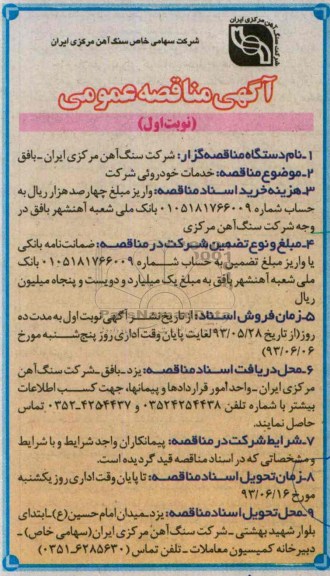 شرکت سنگ آهن مرکزی ایران
شرکت سهامی خاص سنگ آهن مرکزی ایران
آگهی مناقصه عمومی
(نوبت اول)
۱-نام دستگاه مناقصه گزار: شرکت سنگ آهن مرکزی ایران -بافق
۲-موضوع مناقصه: خدمات خودروئی شرکت
۳-هزینه خرید اسناد مناقصه: واریز مبلغ چهارصد هزار ریال به
حساب شماره ۰۱۰۵۱۸۱۷۶۶۰۰۹ بانک ملی شعبه آهنشهر بافق در
وجه شرکت سنگ آهن مرکزی
۴-مبلغ و نوع تضمین شرکت در مناقصه: ضمانت نامه بانکی
یا واریز مبلغ تضمین به حساب شماره ۰۱۰۵۱۸۱۷۶۶۰۰۹ بانک
ملی شعبه آهنشهر بافق به مبلغ یک میلیارد و دویست و پنجاه میلیون
ریال
۵-زمان فروش اسناد: از تاریخ نشر آگهی نوبت اول به مدت ده
روز (از تاریخ ۹۳/۰۵/۲۸ لغایت پایان وقت اداری روز پنج شنبه مورخ
۹۳/۰۶/۰۶)
۶-محل دریافت اسناد مناقصه: یزد-بافق-شرکت سنگ آهن
مرکزی ایران -واحد امور قراردادها و پیمانها، جهت کسب اطلاعات
بیشتر با شماره تلفن ۰۳۵۲۴۲۵۴۴۳۸ و ۴۲۵۴۴۳۷-۰۳۵۲ تماس
حاصل نمایند.
۷-شرایط شرکت در مناقصه: پیمانکاران واجد شرایط و با شرایط
و مشخصاتی که در اسناد مناقصه قید گردیده است.
۸-زمان تحویل اسناد مناقصه: تا پایان وقت اداری روز یکشنبه
مورخ ۹۳/۰۶/۱۶
۹-محل تحویل اسناد مناقصه: یزد-میدان امام حسین(ع)-ابتدای
بلوار شهید بهشتی -شرکت سنگ آهن مرکزی ایران(سهامی خاص) -
دبیرخانه کمیسیون معاملات -تلفن تماس (۶۲۸۵۶۳۰-۰۳۵۱)